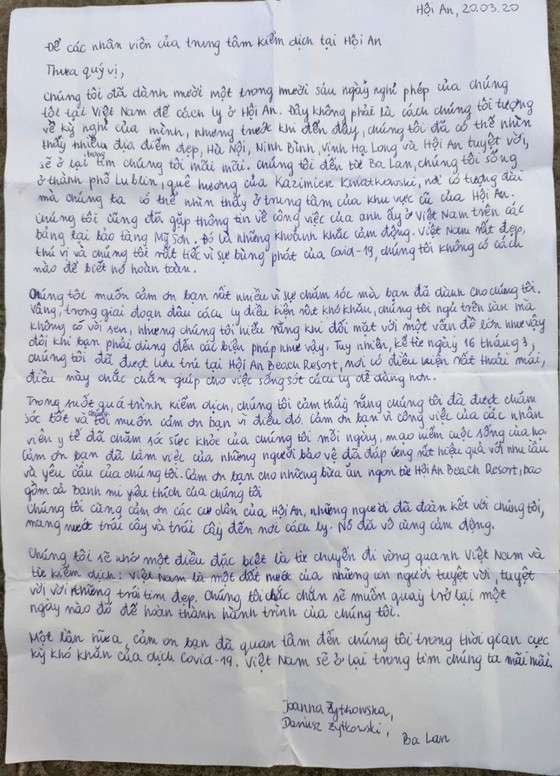 Hội An, 20.03.20
Để các nhân viên của trung tâm kiểm dịch tại Hội An
Thưa quý vị,
Chúng tôi đã dành mười một trong mười sáu ngày nghỉ phép của chúng
tôi tại Việt Nam để cách ly ở Hội An. Đây không phải là cách chúng tôi tưởng
về kỳ nghỉ của mình, nhưng trước khi đến đây, chúng tôi đã có thể nhìn
thấy nhiều địa điểm đẹp, Hà Nội, Ninh Bình, Vịnh Hạ Long và Hội An tuyệt vời,
sẽ ở lại trong tim chúng tôi mãi mãi. Chúng tôi đến từ Ba Lan, chúng tôi sống
ở thành phố Lublin, quê hương của Kazimierz Kwiatkowski, nơi có tượng đài
mà chúng ta có thể nhìn thấy ở trung tâm của khu vực cũ của Hội An.
Chúng tôi cũng đã gặp thông tin về công việc của anh ấy ở Việt Nam trên các
bảng tại bảo tàng Mỹ Sơn. Đó là những khoảnh khắc cảm động. Việt Nam rất đẹp,
thú vị và chúng tôi rất tiếc vì sự bùng phát của Covid-19, chúng tôi không có cách
nào để biết nó hoàn toàn.
Chúng tôi muốn cảm ơn bạn rất nhiều vì sự chăm sóc mà bạn đã dành cho chúng tôi.
Vâng, trong giai đoạn đầu cách ly điều kiện rất khó khăn, chúng tôi ngủ trên sàn mà
không có vòi sen, nhưng chúng tôi hiểu rằng khi đối mặt với một vấn đề lớn như vậy
đôi khi bạn phải dùng đến các biện pháp như vậy. Tuy nhiên, kể từ ngày 16 tháng 3,
chúng tôi đã được lưu trú tại Hội An Beach Resort, nơi có điều kiện rất thoải mái,
điều này chắc chắn giúp cho việc sống sót cách ly dễ dàng hơn.
Trong suốt quá trình kiểm dịch, chúng tôi cảm thấy rằng chúng tôi đã được chăm
sóc tốt và chúng tôi muốn cảm ơn bạn vì điều đó. Cảm ơn bạn vì công việc của các nhân
viên y tế đã chăm sóc sức khỏe của chúng tôi mỗi ngày, mạo hiểm cuộc sống của họ
Cảm ơn bạn đã làm việc của những người bảo vệ đã đáp ứng rất hiệu quả với nhu cầu
và yêu cầu của chúng tôi. Cảm ơn bạn cho những bữa ăn ngon từ Hội An Beach Resort, bao
gồm cả Banh mi yêu thích của chúng tôi
Chúng tôi cũng cảm ơn các cư dân của Hội An, những người đã đoàn kết với chúng tôi,
mang nước trái cây và trái cây đến nơi cách ly. Nó đã vô cùng cảm động.
Chúng tôi sẽ nhớ một điều đặc biệt là từ chuyến đi vòng quanh Việt Nam và
từ kiểm dịch: Việt Nam là một đất nước của những người tuyệt vời, tuyệt
vời với những trái tim đẹp. Chúng tôi chắc chắn sẽ muốn quay trở lại một
ngày nào đó để hoàn thành hành trình của chúng tôi.
Một lần nữa, cảm ơn bạn đã quan tâm đến chúng tôi trong thời gian cực
kỳ khó khăn của dịch Covid-19. Việt Nam sẽ ở lại trong tim chúng ta mãi mãi.
Joanna Żytkowska,
Dariusz Żytkowski,
Ba Lan